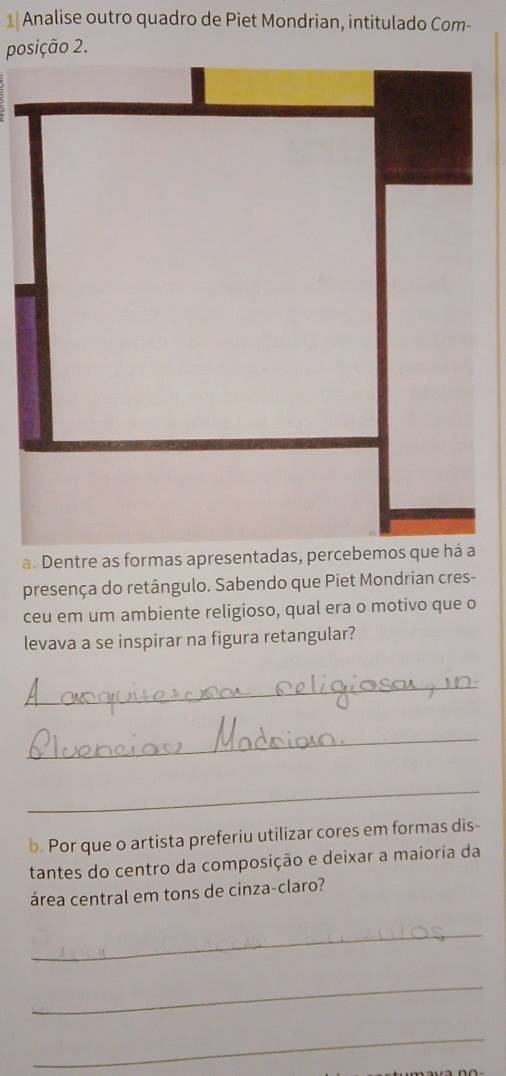 1| Analise outro quadro de Piet Mondrian, intitulado Com-
posição 2.
a. Dentre as formas apresentadas, percebemos que há a
presença do retângulo. Sabendo que Piet Mondrian cres-
ceu em um ambiente religioso, qual era o motivo que o
levava a se inspirar na figura retangular?
A religiosa, in-
b. Por que o artista preferiu utilizar cores em formas dis-
tantes do centro da composição e deixar a maioria da
área central em tons de cinza-claro?